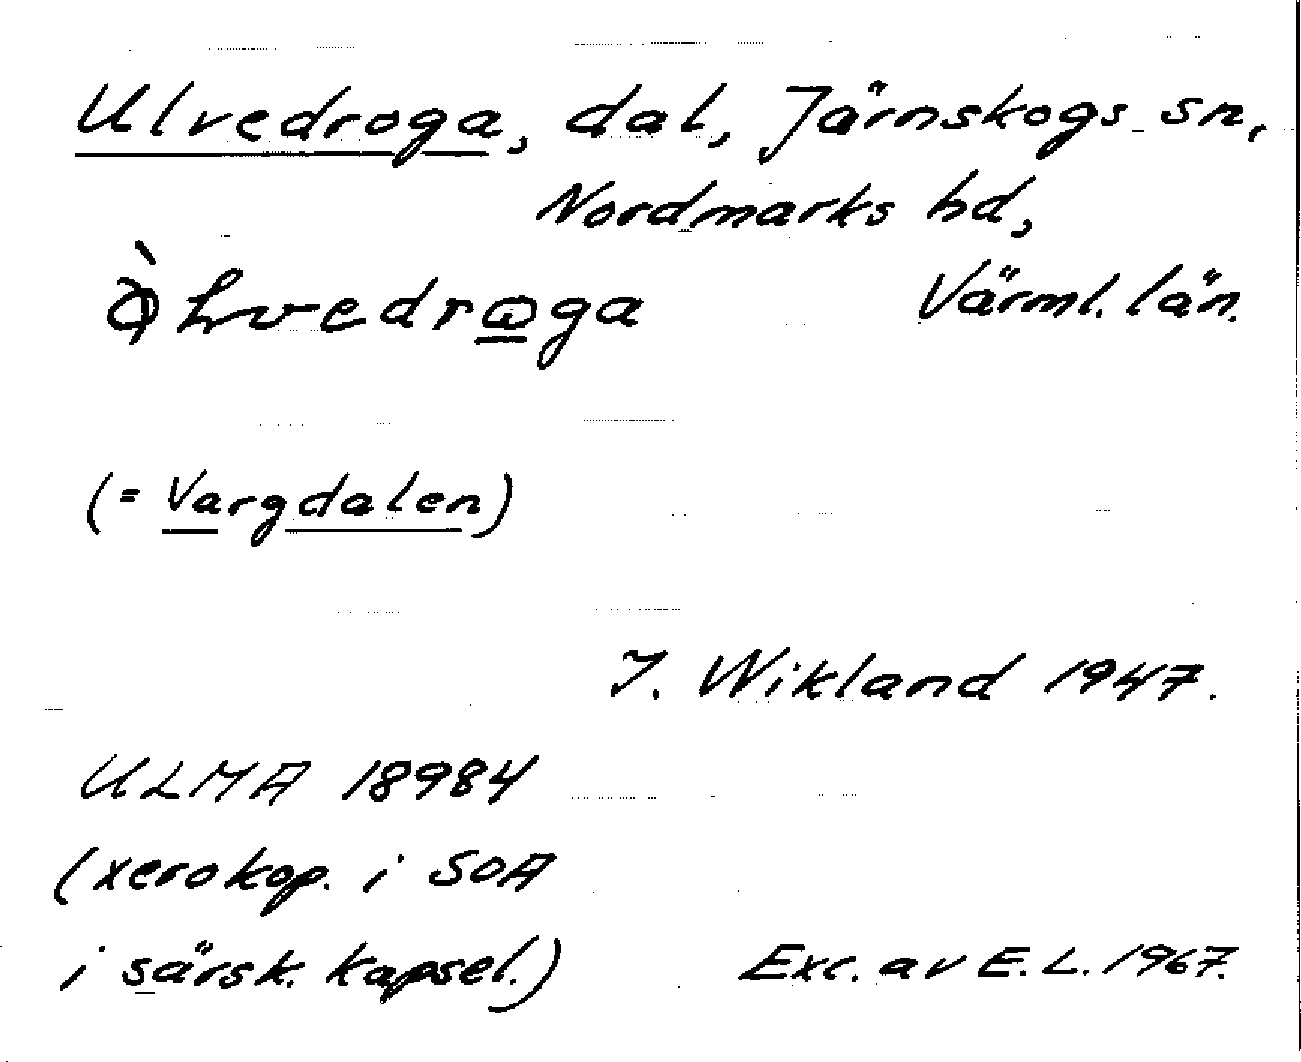 Ulvedroga, dal, Järnskogs sn,
Nordmarks hd,
Värml. län.
(= Vargdalen)
J. Wikland 1947.
ULMA 18984
(xerokop. i SOA
i särsk. kapsel.)
Exc. av E. L. 1967.